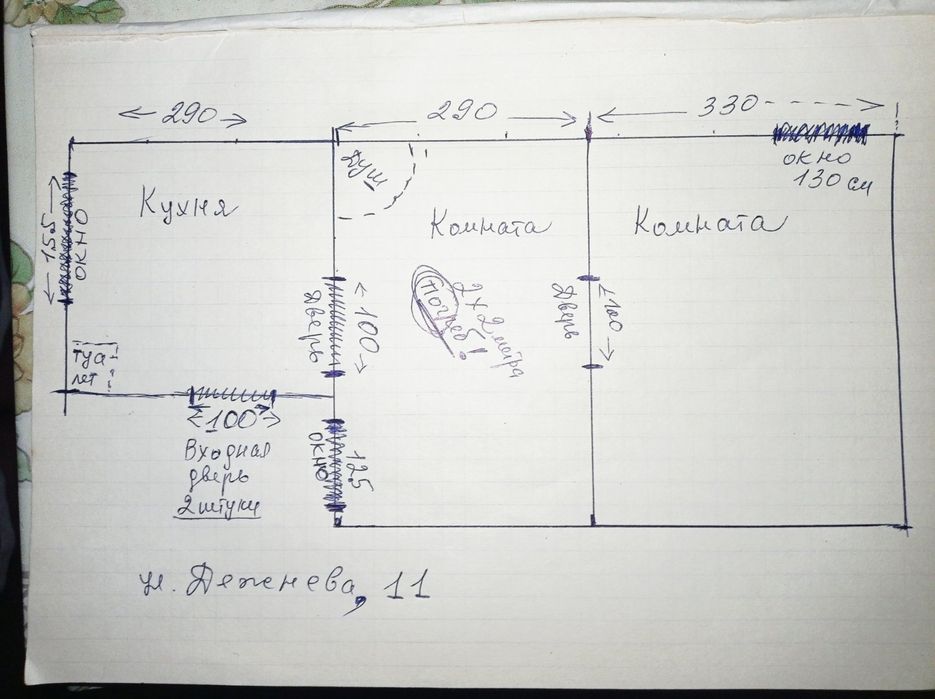 290
290
330
окно
130 см
Душ
Кухня
Комната
Комната
155
окно
Дверь
100
Погреб!
2х2 метра
Дверь
100
туа-
лет
100
Входная
дверь
2 штуки
окно
125
ул. Дежнева, 11